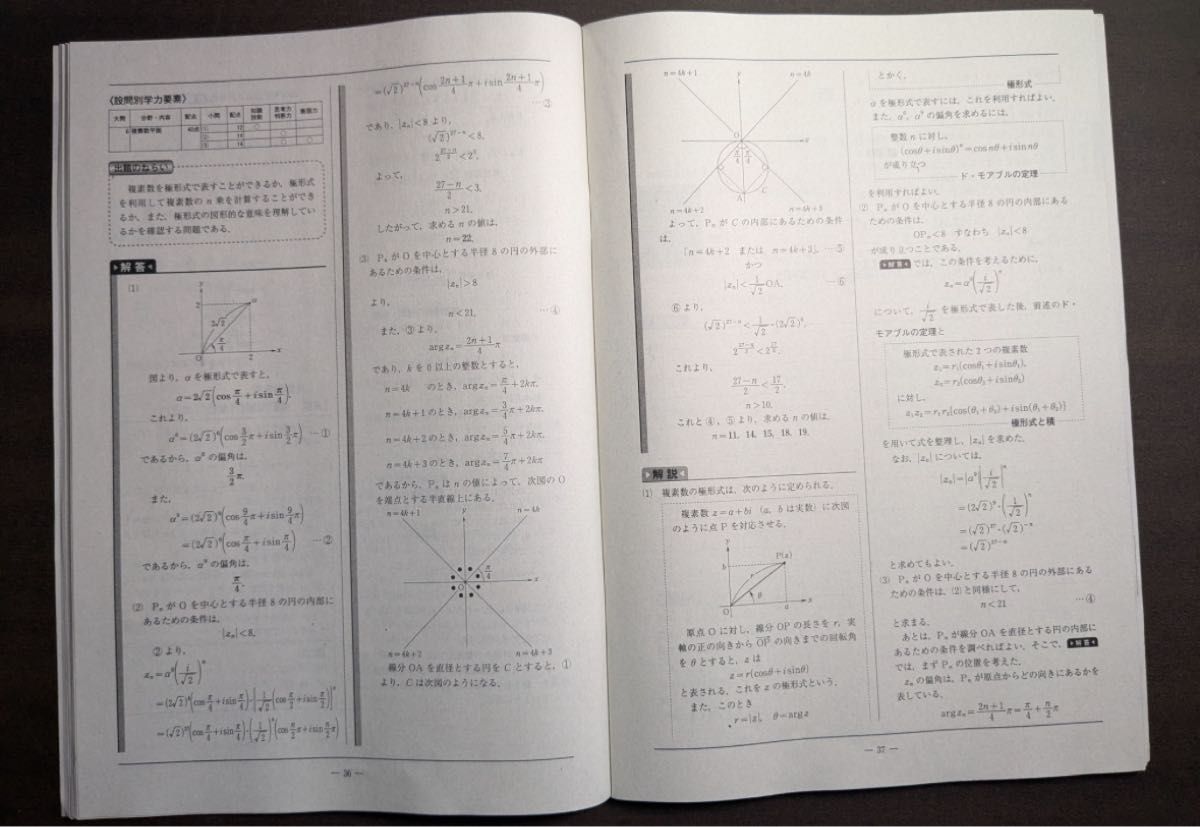 〈設問別学力要素〉
大問 分野・内容 配点 小問 配点 知識技能 思考力判断力 表現力
6 複素数平面 40点 (1) 12 ○
(2) 14 ○
(3) 14 ○ ○
出題のねらい
複素数を極形式で表すことができるか,極形式
を利用して複素数の n 乗を計算することができ
るか,また,極形式の図形的な意味を理解してい
るかを確認する問題である.
解答
(1)
y
2
α
2√2
π/4
O
2
x
図より,αを極形式で表すと,
α=2√2(cos π/4 + i sin π/4).
これより,
α⁶=(2√2)⁶(cos 3/2 π+i sin 3/2 π) …①
であるから,α⁶ の偏角は,
3/2 π.
また,
α⁹=(2√2)⁹(cos 9/4 π+i sin 9/4 π)
=(2√2)⁹(cos π/4 + i sin π/4) …②
であるから,α⁹ の偏角は,
π/4.
(2) Pₙ が O を中心とする半径 8 の円の内部に
あるための条件は,
|zₙ|<8.
② より,
zₙ=α⁹(i/√2)ⁿ
=(2√2)⁹(cos π/4 + i sin π/4)・[1/√2 (cos π/2 + i sin π/2)]ⁿ
=(√2)²⁷(cos π/4 + i sin π/4)・(1/√2)ⁿ(cos n/2 π+i sin n/2 π)
=(√2)²⁷⁻ⁿ(cos 2n+1/4 π+i sin 2n+1/4 π)
…③
であり,|zₙ|<8 より,
(√2)²⁷⁻ⁿ<8.
2^((27−n)/2)<2³.
よって,
27−n/2 <3.
n>21.
したがって,求める n の値は,
n=22.
(3) Pₙ が O を中心とする半径 8 の円の外部に
あるための条件は,
|zₙ|>8
より,
n<21. …④
また,③ より,
arg zₙ= 2n+1/4 π
であり,k を 0 以上の整数とすると,
n=4k のとき,arg zₙ= π/4 +2kπ.
n=4k+1 のとき,arg zₙ= 3/4 π+2kπ.
n=4k+2 のとき,arg zₙ= 5/4 π+2kπ.
n=4k+3 のとき,arg zₙ= 7/4 π+2kπ
であるから,Pₙ は n の値によって,次図の O
を端点とする半直線上にある.
n=4k+1
y
n=4k
π/4
O
x
n=4k+2
n=4k+3
線分 OA を直径とする円を C とすると,①
より,C は次図のようになる.
― 36 ―
n=4k+1
y
n=4k
O
x
π/4
π/4
C
A
n=4k+2
n=4k+3
よって,Pₙ が C の内部にあるための条件
は,
「n=4k+2 または n=4k+3」 …⑤
かつ
|zₙ|< 1/√2 OA. …⑥
⑥ より,
(√2)²⁷⁻ⁿ< 1/√2 ・(2√2)⁶.
2^((27−n)/2)<2^(17/2).
これより,
27−n/2 < 17/2.
n>10.
これと ④,⑤ より,求める n の値は,
n=11, 14, 15, 18, 19.
解説
(1) 複素数の極形式は,次のように定められる.
複素数 z=a+bi (a, b は実数) に次図
のように点 P を対応させる.
y
b
P(z)
r
θ
O
a
x
原点 O に対し,線分 OP の長さを r,実
軸の正の向きから OP の向きまでの回転角
を θ とすると,z は
z=r(cosθ+i sinθ)
と表される.これを z の極形式という.
また,このとき
r=|z|, θ=arg z
とかく.
極形式
α を極形式で表すには,これを利用すればよい.
また,α⁶,α⁹ の偏角を求めるには,
整数 n に対し,
(cosθ+i sinθ)ⁿ=cos nθ+i sin nθ
が成り立つ
ド・モアブルの定理
を利用すればよい.
(2) Pₙ が O を中心とする半径 8 の円の内部にある
ための条件は,
OPₙ<8 すなわち |zₙ|<8
が成り立つことである.
解答 では,この条件を考えるために,
zₙ=α⁹(i/√2)ⁿ
について,i/√2 を極形式で表した後,前述のド・
モアブルの定理と
極形式で表された 2 つの複素数
z₁=r₁(cosθ₁+i sinθ₁),
z₂=r₂(cosθ₂+i sinθ₂)
に対し,
z₁z₂=r₁r₂{cos(θ₁+θ₂)+i sin(θ₁+θ₂)}
極形式と積
を用いて式を整理し,|zₙ| を求めた.
なお,|zₙ| については,
|zₙ|=|α⁹||i/√2|ⁿ
=(2√2)⁹・(1/√2)ⁿ
=(√2)²⁷・(√2)⁻ⁿ
=(√2)²⁷⁻ⁿ
と求めてもよい.
(3) Pₙ が O を中心とする半径 8 の円の外部にある
ための条件は,(2)と同様にして,
n<21 …④
と求まる.
あとは,Pₙ が線分 OA を直径とする円の内部に
あるための条件を調べればよい.そこで,解答
では,まず Pₙ の位置を考えた.
zₙ の偏角は,Pₙ が原点からどの向きにあるかを
表している.
arg zₙ= 2n+1/4 π= π/4 + n/2 π
― 37 ―